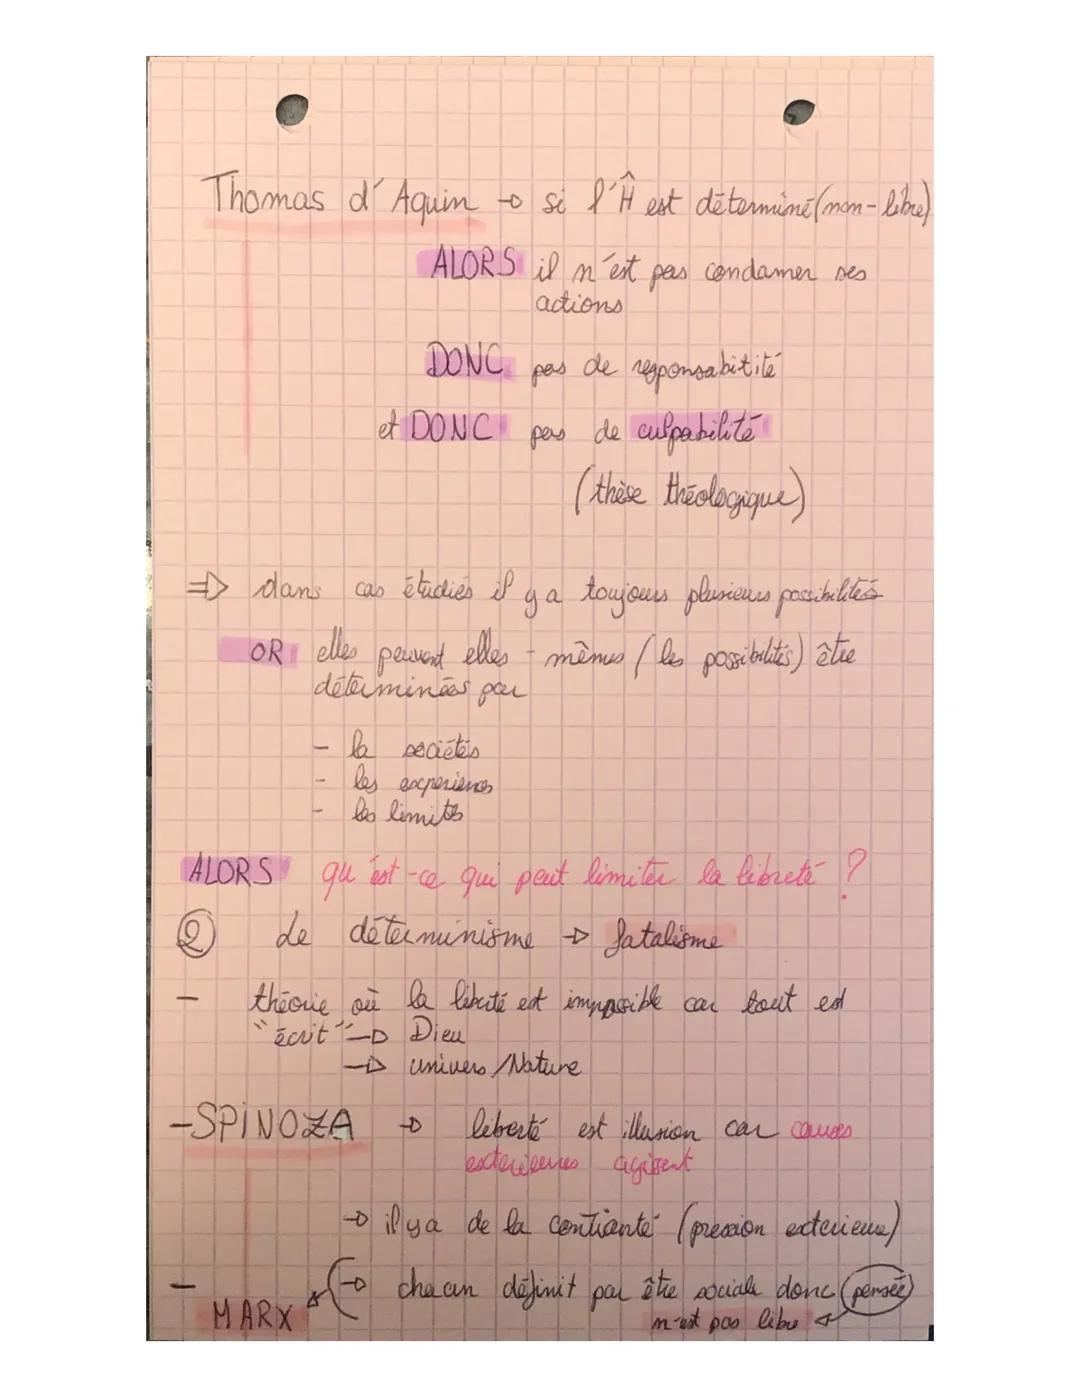 Thomas d'Aquin → si l'Ĥ est déterminé (non-libre)
ALORS il n'est pas condamer ses
actions
DONC pas de responsabitité
et DONC pas de culpabilité
(thèse théologique)
⇒ dans cas étudiés il y a toujours plusieurs possibilités
OR elles peuvent elles-mêmes (les possibilités) être
déterminées par
- la sociétés
- les experiences
- les limites
ALORS qu'est-ce qui peut limiter la libreté ?
② Le déterminisme → fatalisme
- théorie où la liberté est impossible car tout est
"écrit" → Dieu
→ univers/Nature
- SPINOZA → liberté est illusion car causes
exterieures agissent
→ il y a de la contianté (pression exterieure)
- → chacun définit par être sociale donc (pensée)
MARX n'est pas libre